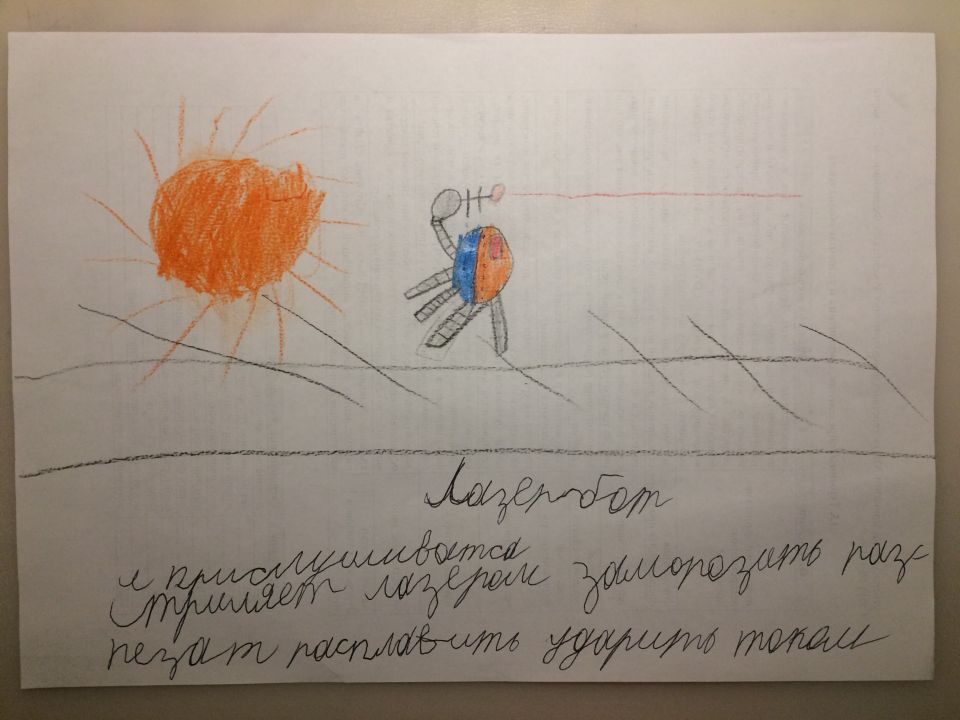 Лазер-бот
и прислушиватса
Стриляет лазером заморозить раз-
незат расплавить ударить током